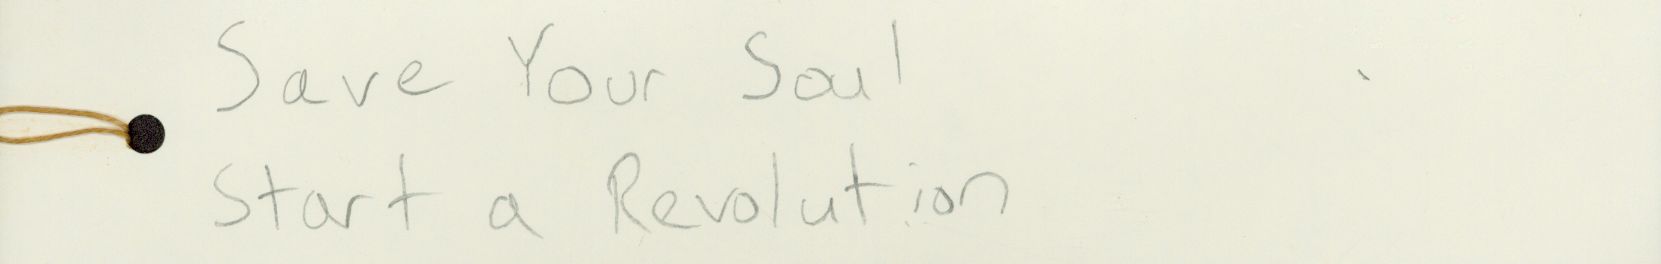 Save Your Soul
Start a Revolution